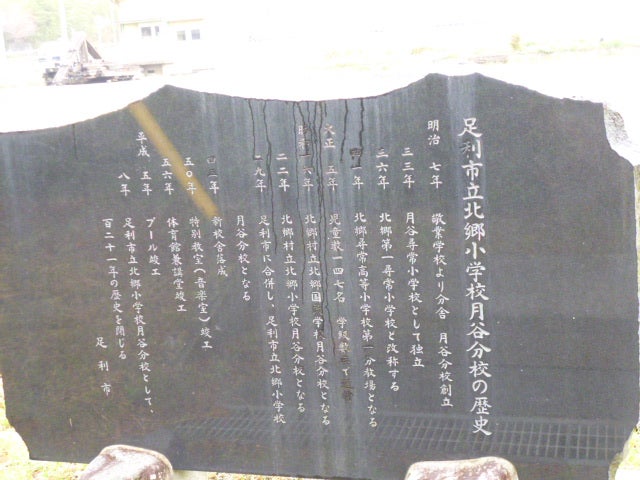 足利市立北郷小学校月谷分校の歴史
明治 七年 敬業学校より分舎 月谷分校創立
三三年 月谷尋常小学校として独立
三六年 北郷第一尋常小学校と改称する
四一年 北郷尋常高等小学校第一分教場となる
大正 五年 児童数一四七名 学級数
昭和一六年 北郷村立北郷国民学校月谷分校となる
二二年 北郷村立北郷小学校月谷分校となる
二九年 足利市に合併し、足利市立北郷小学校
月谷分校となる
年 新校舎落成
五〇年 特別教室(音楽室)竣工
五六年 体育館兼講堂竣工
平成 五年 プール竣工
八年 足利市立北郷小学校月谷分校として、
百二十一年の歴史を閉じる
足利市